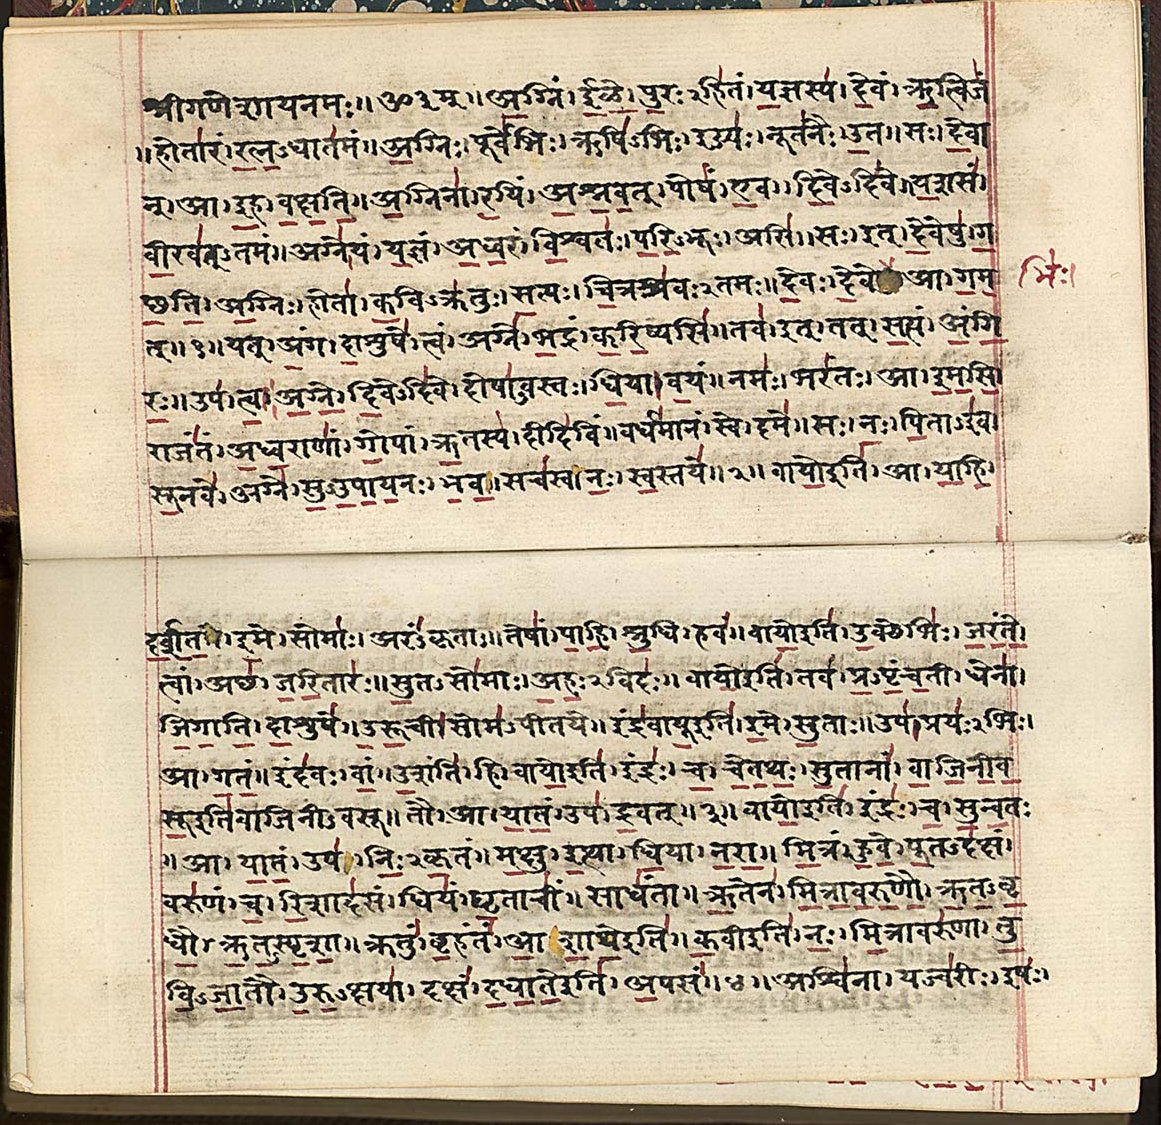 श्रीगणेशायनमः॥ ॐ३म्॥ अ॒ग्निं। ई॒ळे॒। पु॒रः२हि॑तं। य॒ज्ञस्य॑। दे॒वं। ऋ॒त्विजं॑
॥होता॑रं। र॒त्न॒ऽधात॑मं॥ अ॒ग्निः। पूर्वे॑भिः। ऋषि॑ऽभिः। ईड्यः॑। नूत॑नैः। उ॒त॥ सः। दे॒वा
न्। आ। इ॒ह। व॒क्ष॒ति॒॥ अ॒ग्निना॑। र॒यिं। अ॒श्न॒व॒त्। पोषं॑। ए॒व। दि॒वेऽदि॑वे॥ य॒शसं॑
वी॒रव॑त्ऽतमं॥ अग्ने॑। यं। य॒ज्ञं। अ॒ध्व॒रं। वि॒श्वतः॑। प॒रि॒ऽभूः। असि॑॥ सः। इत्। दे॒वेषु॑। ग॒
च्छ॒ति॒। अ॒ग्निः। होता॑। क॒विऽक्र॑तुः। स॒त्यः। चि॒त्रश्र॑वः२तमः॥ दे॒वः। दे॒वे आ। ग॒म॒
भिः॑।
त्॥१॥ यत्। अं॒ग। दा॒शुषे॑। त्वं। अग्ने॑। भ॒द्रं। क॒रि॒ष्यसि॑॥ तव॑। इत्। तत्। स॒त्यं। अं॒गि॒
रः॒॥ उप॑। त्वा॒। अ॒ग्ने॒। दि॒वेऽदि॑वे। दोषा॑ऽवस्तः। धि॒या। व॒यं॥ नमः॑। भरं॑तः। आ। इ॒म॒सि॒
राजं॑तं। अ॒ध्व॒राणां॑। गो॒पां। ऋ॒तस्य॑। दीदि॑विं॥ वर्ध॑मानं। स्वे। दमे॑॥ सः। नः॒। पि॒ताऽइ॑व।
सू॒नवे॑। अग्ने॑। सु॒ऽउ॒पा॒य॒नः। भ॒व॒॥ सच॑स्व। नः॒। स्व॒स्तये॑॥२॥ वायो॒इति॑। आ। या॒हि॒।
द॒र्श॒त॒। इ॒मे। सोमाः॑। अरं॑कृताः॥ तेषां॑। पा॒हि॒। श्रु॒धि। हवं॑॥ वायो॒इति॑। उ॒क्थेभिः॑। ज॒रं॒ते॒
त्वां। अच्छ॑। ज॒रि॒तारः॑॥ सु॒तऽसो॑माः। अ॒हः॒२विदः॑॥ वायो॒इति॑। तव॑। प्र॒ऽपृं॒च॒ती। धेना॑।
जि॒गा॒ति॒। दा॒शुषे॑॥ उ॒रू॒ची। सोम॑ऽपीतये॥ इंद्र॑वायू॒इति॑। इ॒मे। सु॒ताः॥ उप॑। प्रयः॑२भिः।
आ। ग॒तं॥ इंद॑वः। वां॒। उ॒शंति॑। हि॥ वायो॒इति॑। इंद्रः॑। च॒। चे॒त॒थः॒। सु॒तानां॑। वा॒जि॒नी॒व॒
सू॒इति॑वाजिनीऽवसू॥ तौ। आ। या॒तं॒। उप॑। द्र॒वत्॥३॥ वायो॒इति॑। इंद्रः॑। च॒। सु॒न्व॒तः
। आ। या॒तं॒। उप॑। निः॒२कृ॒तं॥ म॒क्षु। इ॒त्था। धि॒या। न॒रा॒॥ मि॒त्रं। हु॒वे॒। पू॒तऽद॑क्षं।
वरु॑णं। च॒। रि॒शाद॑सं। धियं॑। घृ॒ताचीं॑। साधं॑ता॥ ऋ॒तेन॑। मि॒त्रा॒व॒रु॒णौ॒। ऋ॒त॒ऽवृ॒
धौ॒। ऋ॒त॒स्पृ॒शा॒॥ क्रतुं॑। बृ॒हंतं॑। आ॒शा॒थे॒इति॑॥ क॒वीइति॑। नः॒। मि॒त्रावरु॑णा। तु॒
वि॒ऽजा॒तौ। उ॒रु॒ऽक्षया॑। दक्षं॑। द॒धा॒ते॒इति॑। अ॒पसं॑॥४॥ अश्वि॑ना। यज्व॑रीः। इषः॑।